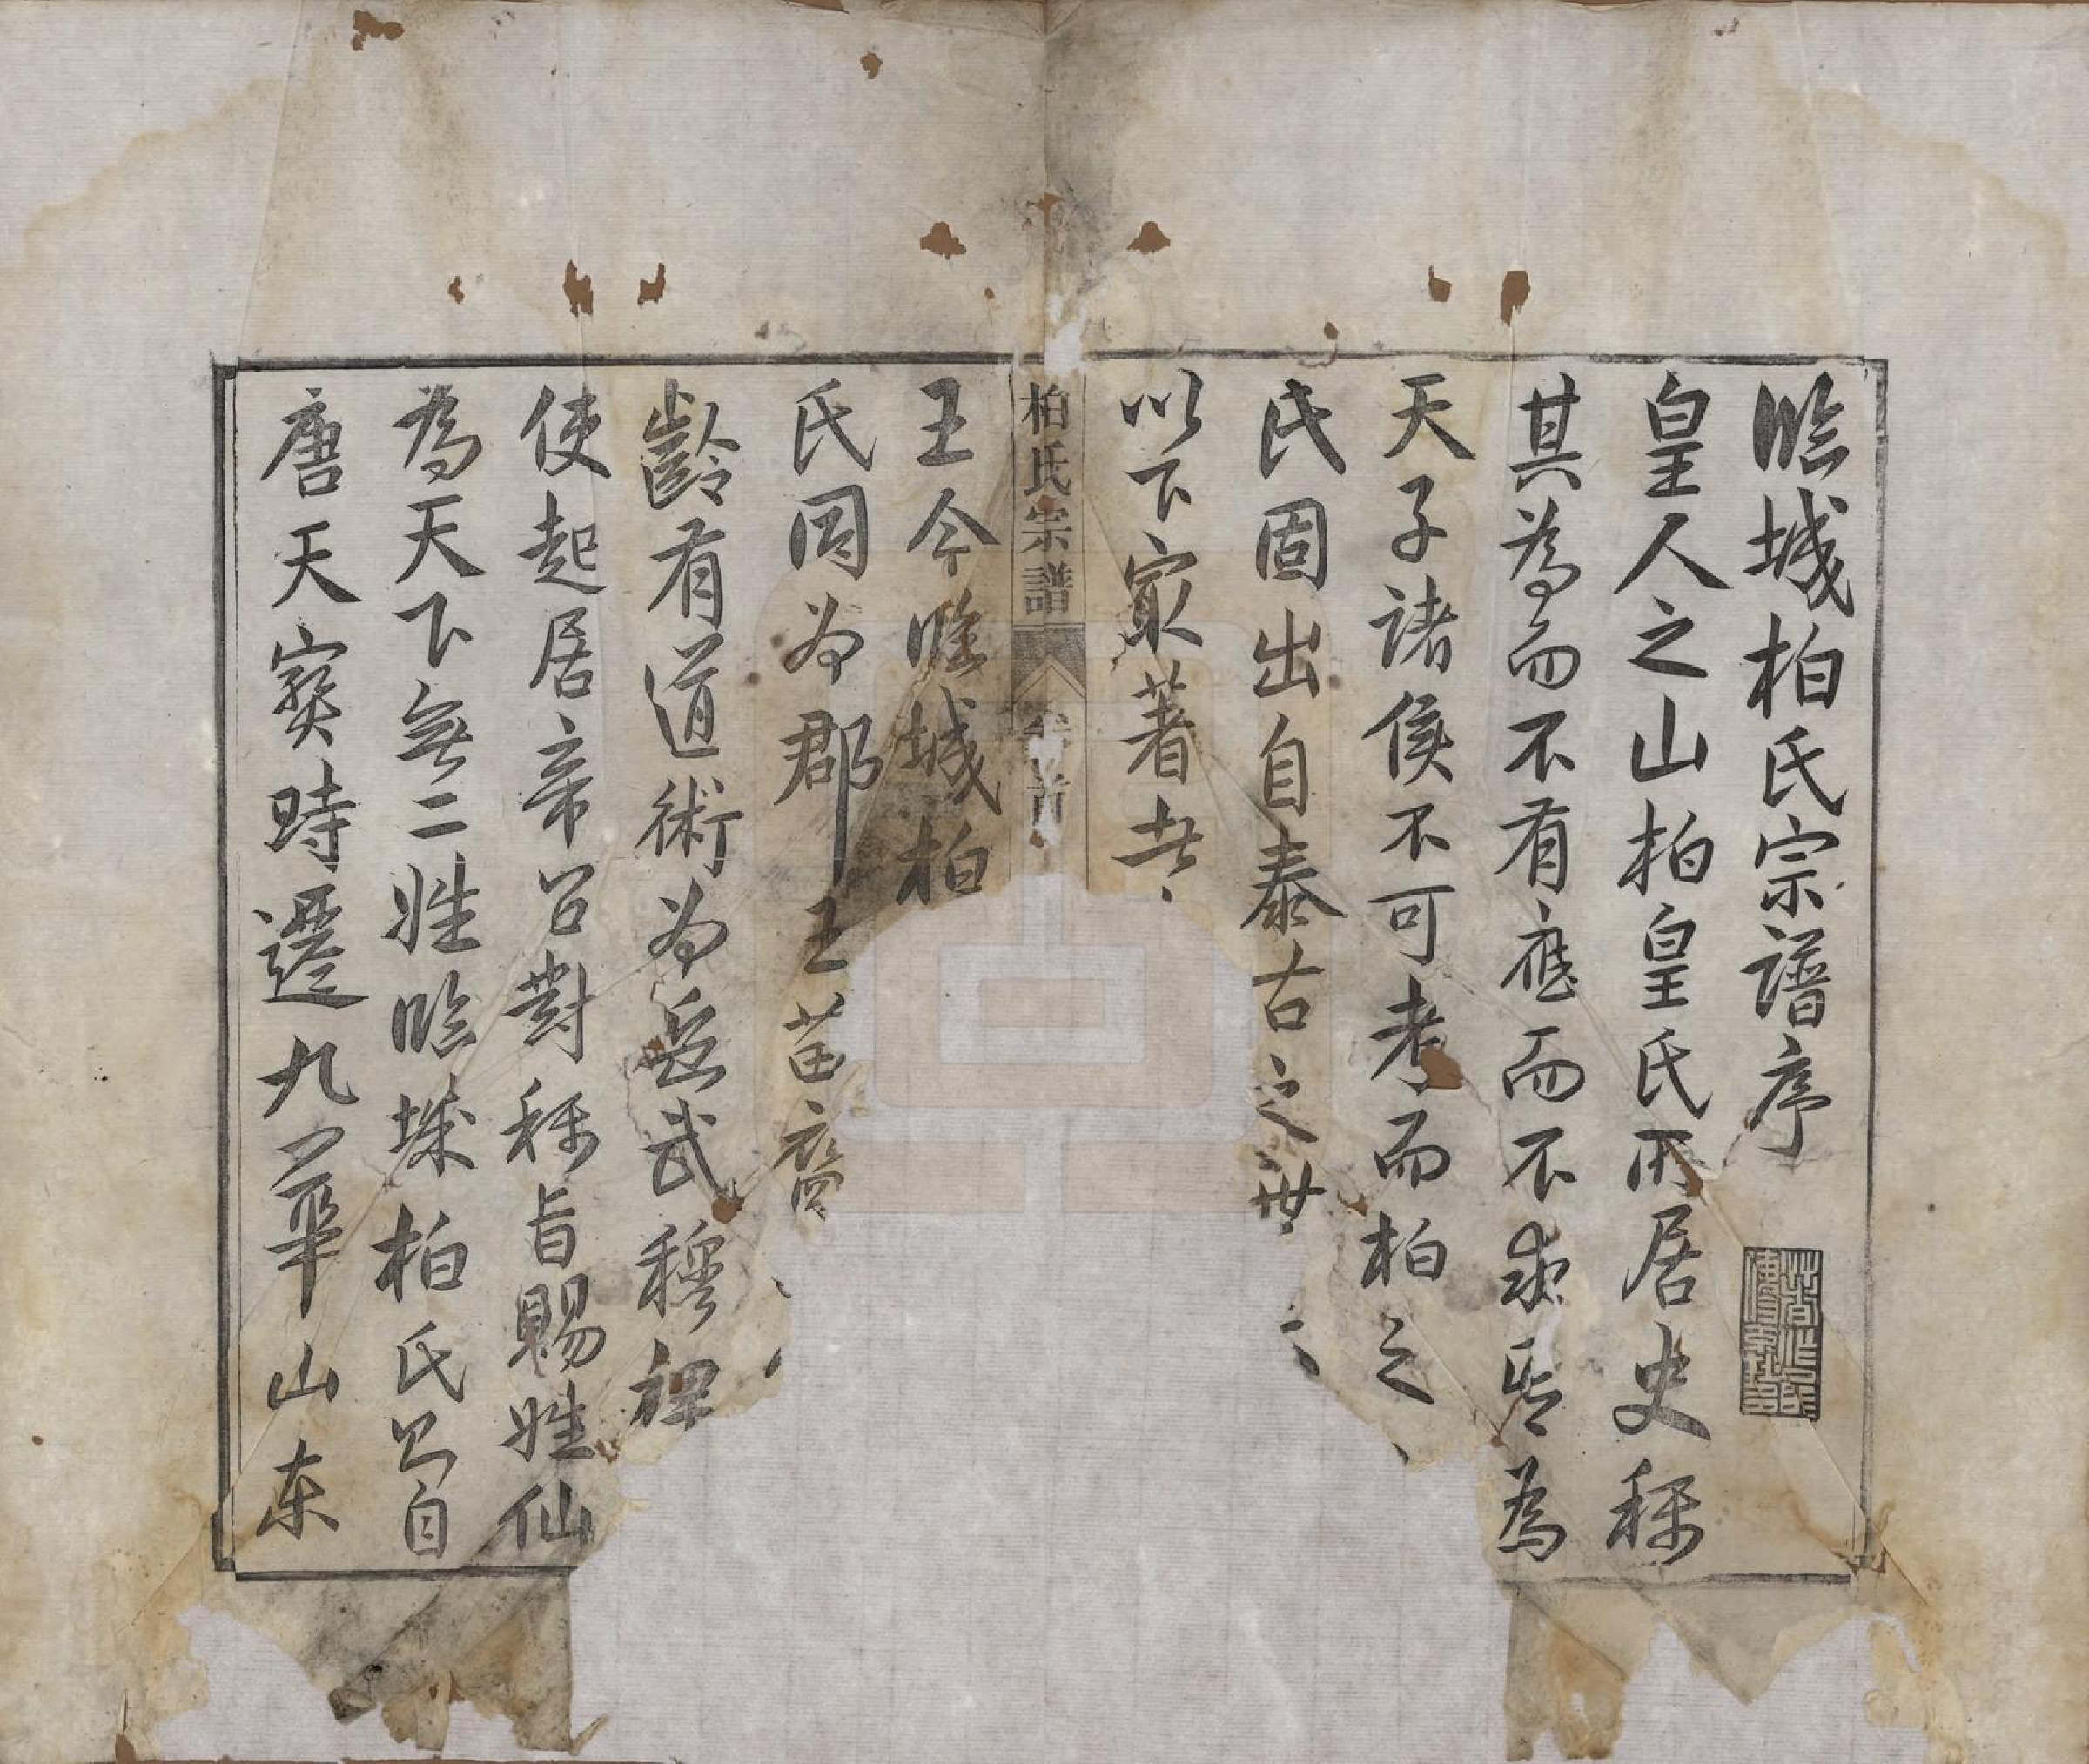 臨城柏氏宗譜序
皇人之山柏皇氏所居史稱
其為而不有應而不求后為
天子諸侯不可考而柏之
氏固出自泰古之世
以下最著者
柏氏宗譜
卷首
王今臨城柏
氏因為郡王苗裔
齡有道術為岳武穆裨
使起居帝召對稱旨賜姓仙
為天下無二姓臨城柏氏公自
唐天寶時遷九華山東